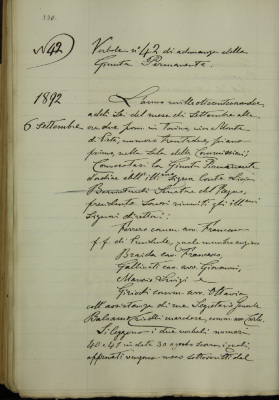 330.
N 42
Verbale n° 42 di adunanza della
Giunta Permanente.
1892
6 settembre
L'anno milleottocentonovantadue,
addì sei del mese di settembre alle
ore due pom. in Torino, via Monte
di Pietà, numero trentadue, piano
primo, nella Sala delle Commissioni;
Convocatasi la Giunta Permanente
d'ordine dell'Ill.mo Signor Conte Luigi
Senatore del Regno,
presidente sono riuniti gli ill.mi
Signori direttori:
Ferrero comm. avv. Francesco
f. f. di Presidente, quale membro anziano
Braida cav. Francesco,
Gallinati cav. avv. Giovanni,
Luigi e
comm. avv. Ottavio
coll'assistenza di me Segretario Generale
comm. avv. Carlo.
Si leggono i due verbali numeri
40 e 41 in data 30 agosto scorso, i quali
approvati vengono sottoscritti dal